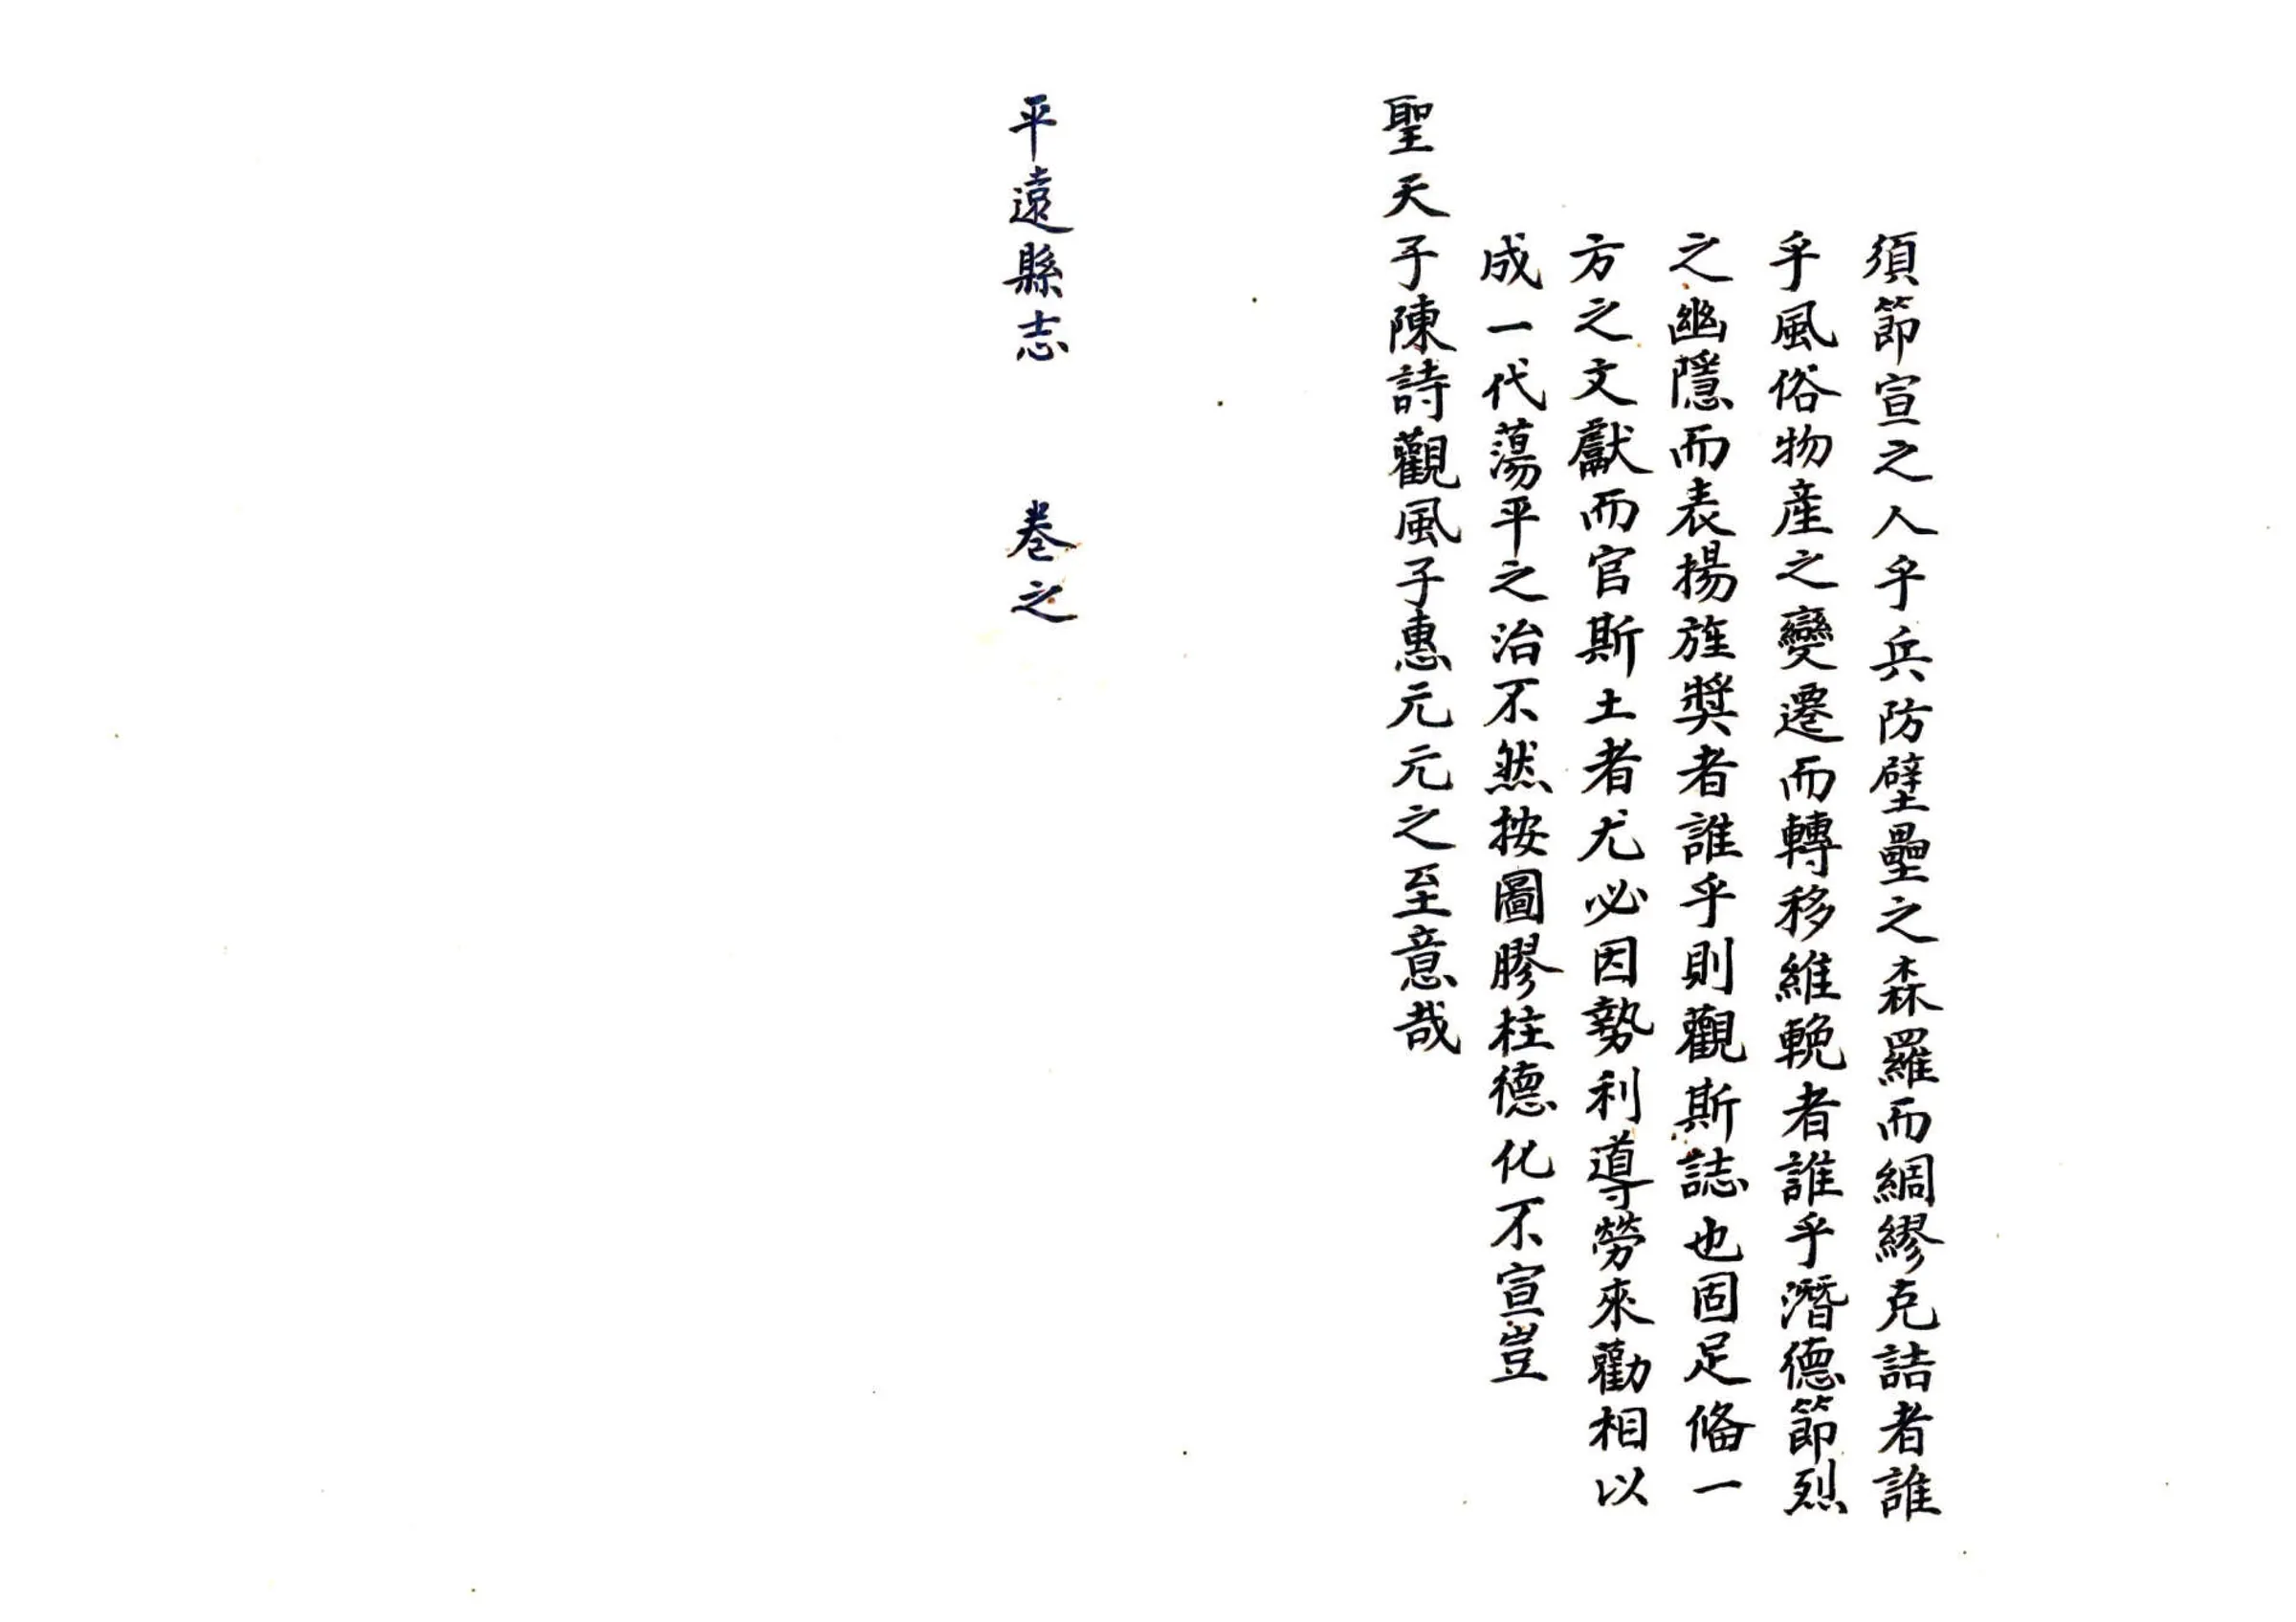 須節宣之人乎兵防壁壘之森羅而綢繆克詰者誰
乎風俗物産之變遷而轉移維輓者誰乎潛德節烈
之幽隱而表揚旌奬者誰乎則觀斯誌也固足俻一
方之文獻而官斯土者尤必因勢利導勞來勸相以
成一代蕩平之治不然按圖膠柱德化不宣豈
聖天子陳詩觀風子惠元元之至意哉
平遠縣志 卷之